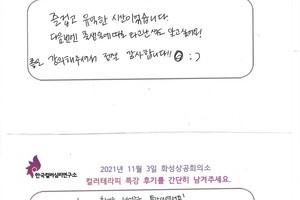 즐겁고 유익한 시간이었습니다.
다음번엔 퍼스널에 따른 타고난 색도 알고싶어요!
좋은 강의해주셔서 정말 감사합니다!! :)
한국컬러심리연구소
2021년 11월 3일 화성상공회의소
컬러테라피 특강 후기를 간단히 남겨주세요.